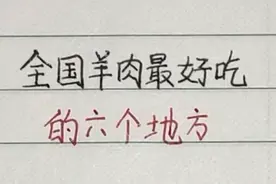 全国羊肉最好吃
的六个地方